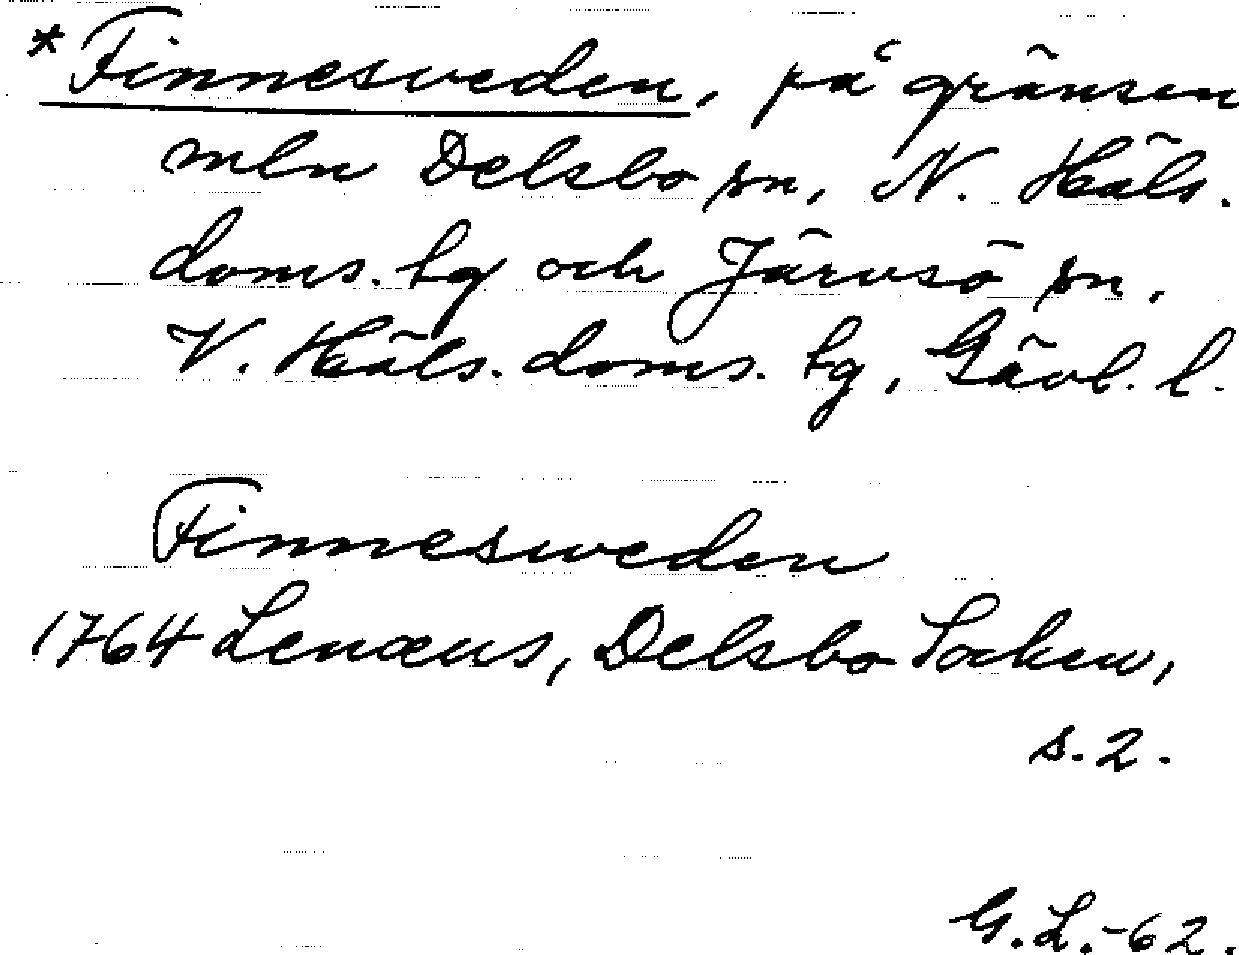 *Finnesveden, på gränsen
mln Delsbo sn, N. Häls.
doms. lg och Järvsö sn.
V. Häls. doms. lg, Gävl. l.
Finnesweden
1764 Lenæus, Delsbo Socken,
s. 2.
G. L. -62.